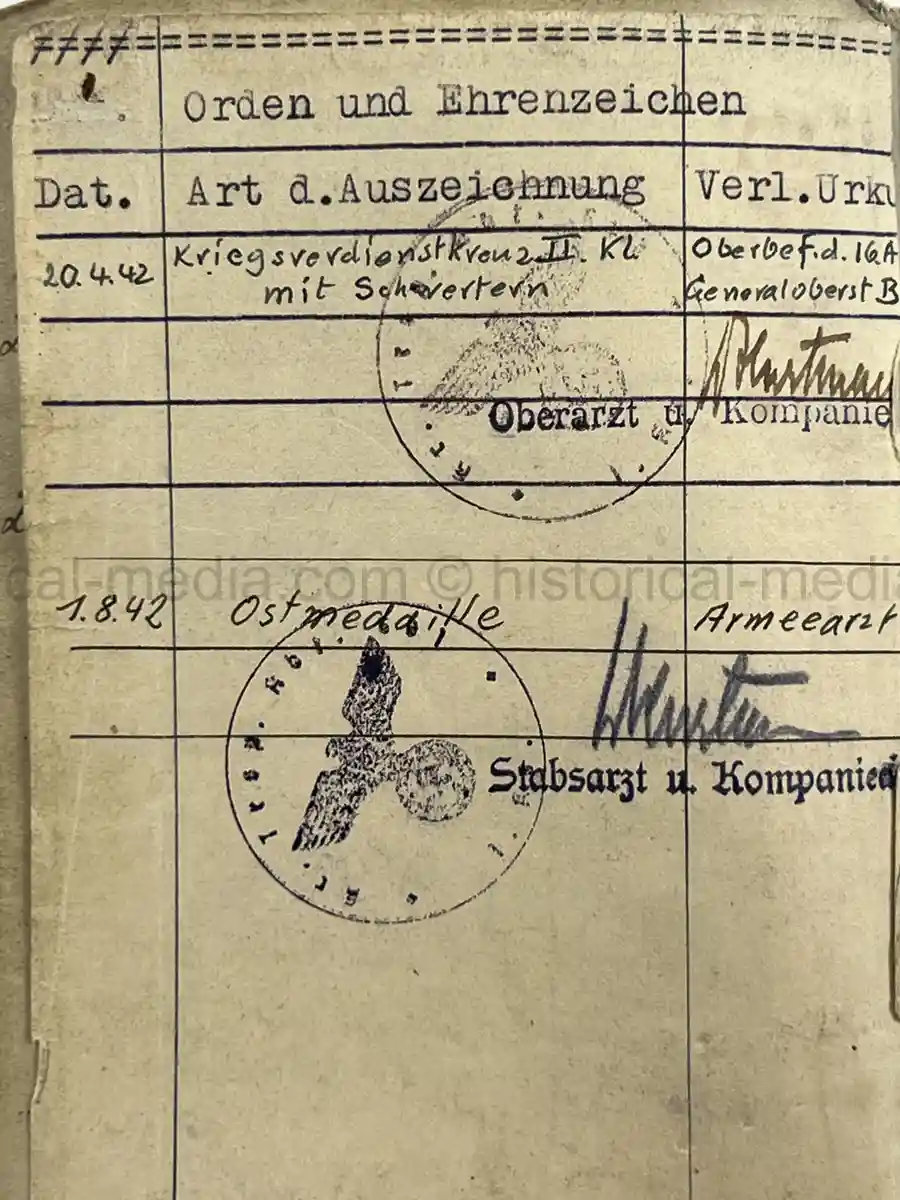 Orden und Ehrenzeichen
Dat. Art d.Auszeichnung Verl.Urku
20.4.42 Kriegsverdienstkreuz II. Kl. Oberbef.d.16.A
mit Schwertern Generaloberst B
Oberarzt u. Kompanie
cal-media.com © historical-media
1.8.42 Ostmedaille Armeearzt
Stabsarzt u. Kompanie